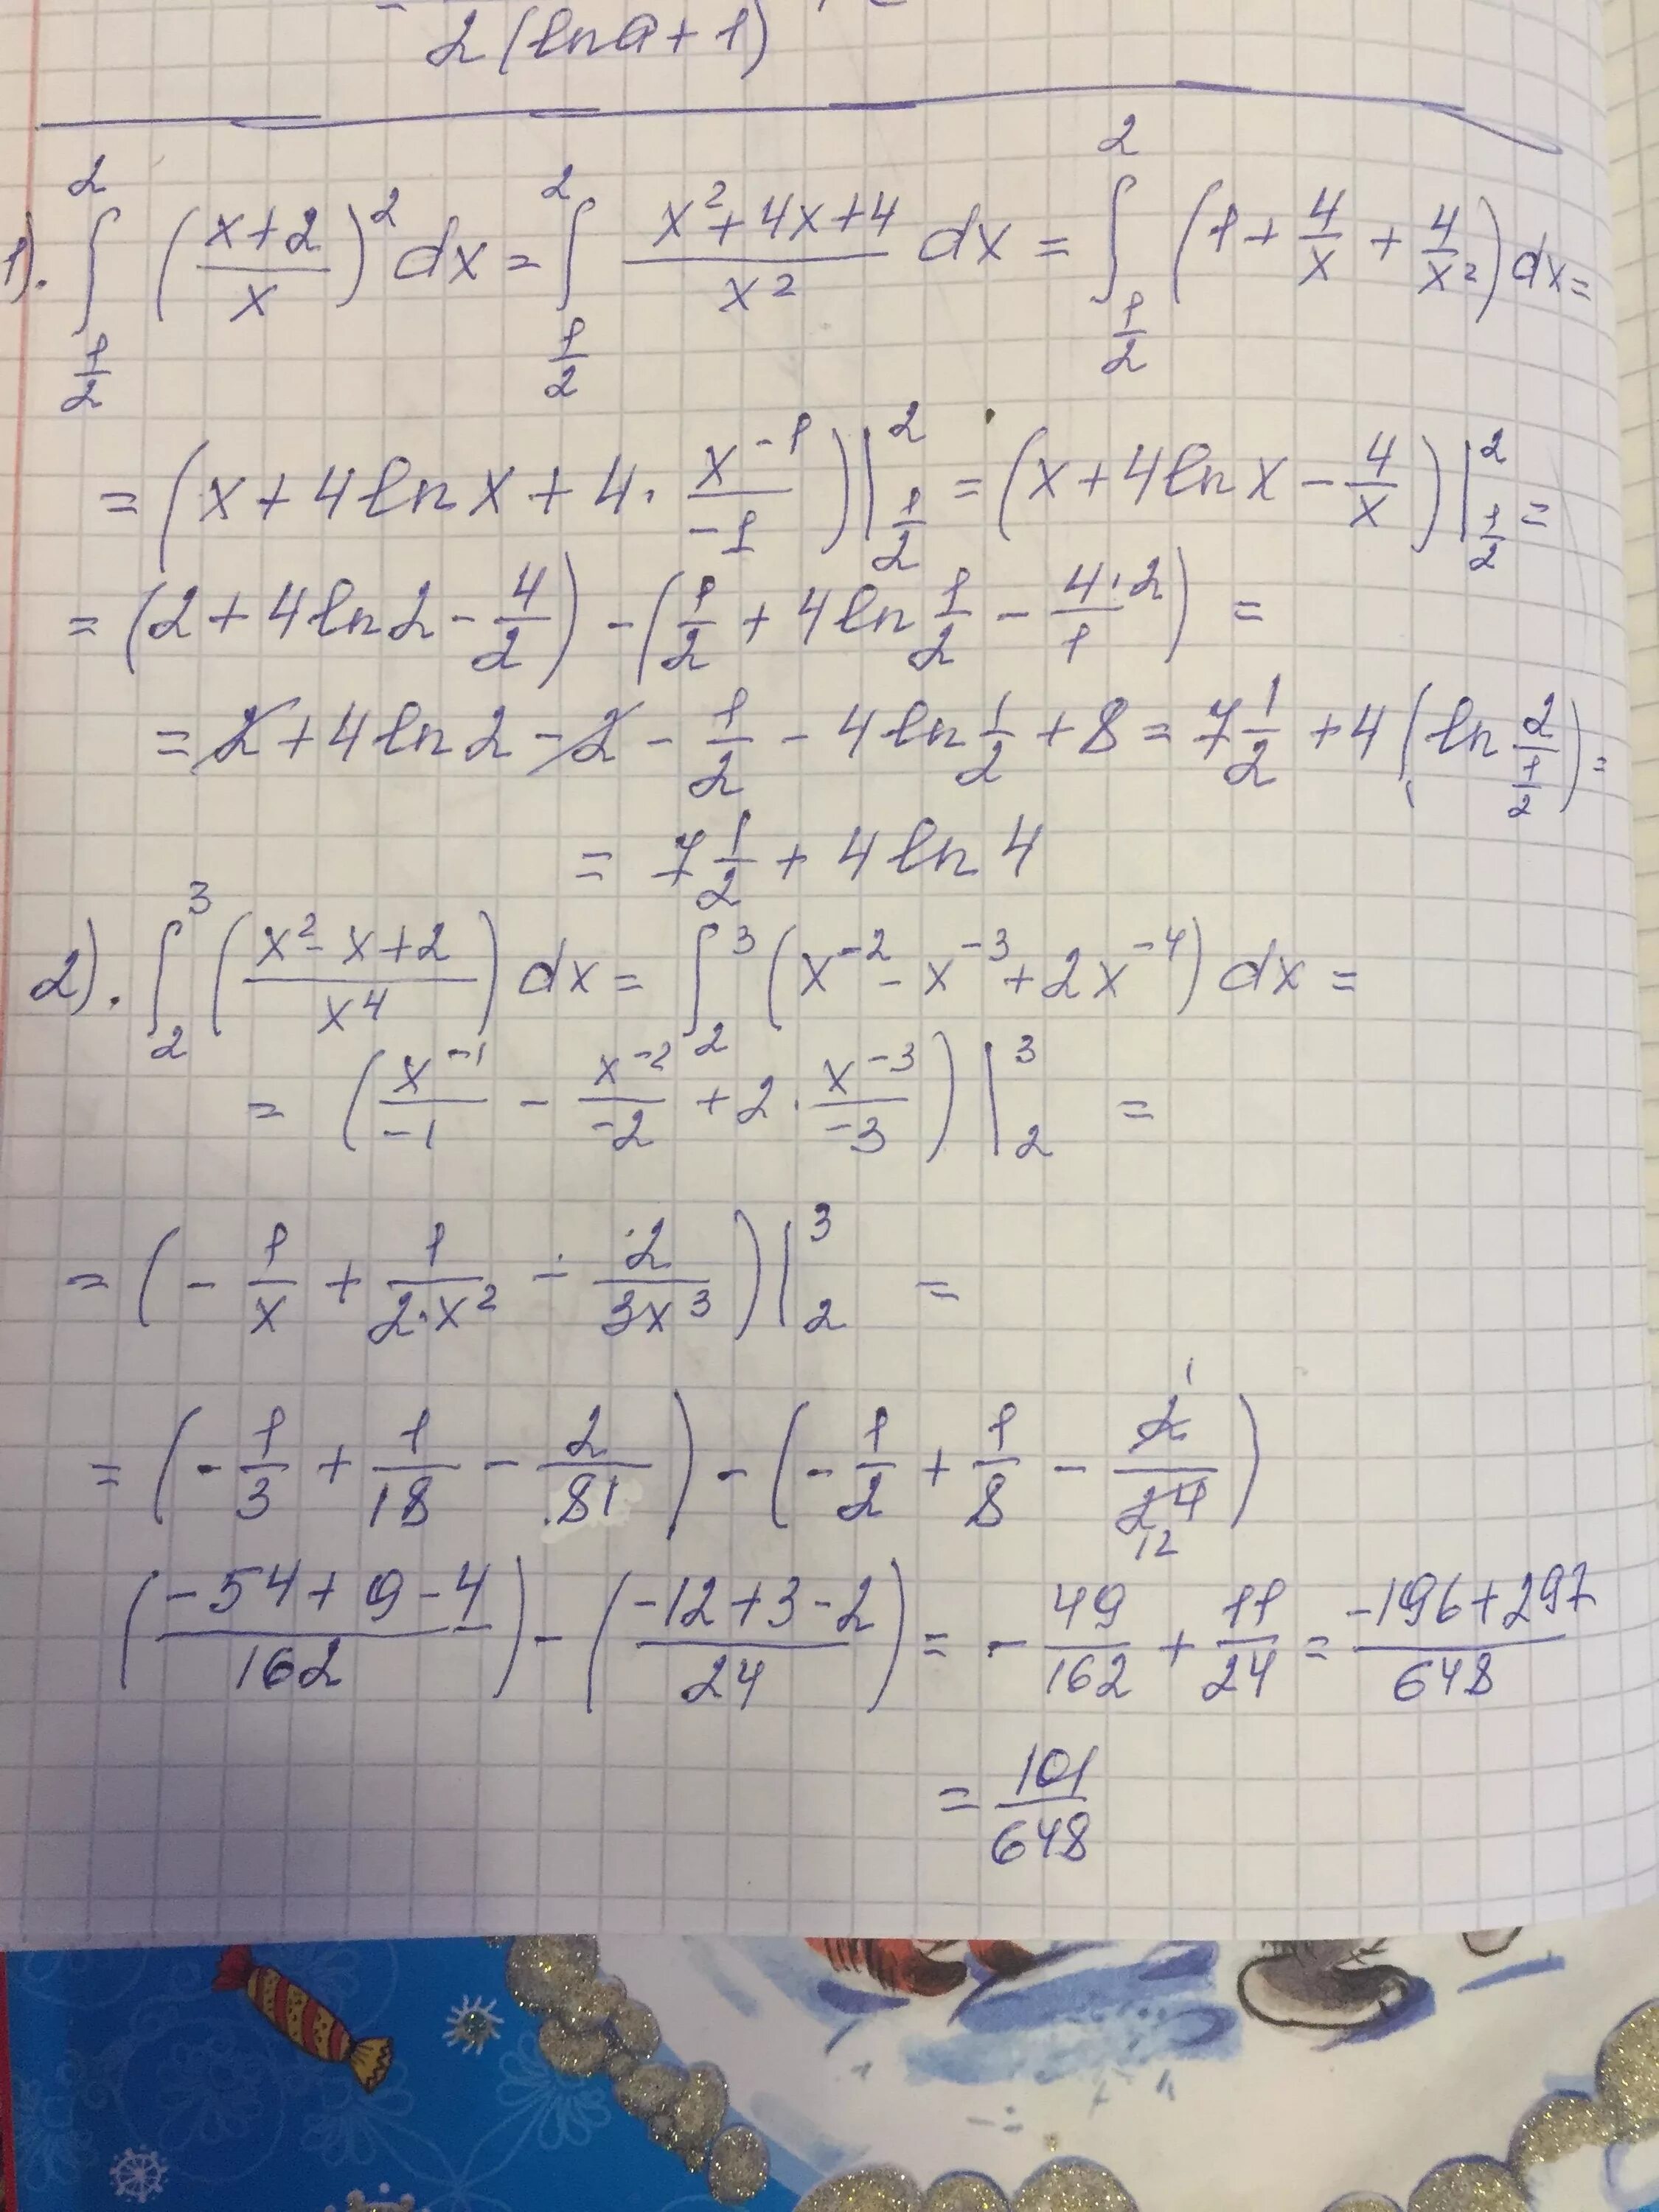 2(lna+1)
1). ∫_{1/2}^{2} ((x+2)/x)² dx = ∫_{1/2}^{2} (x²+4x+4)/x² dx = ∫_{1/2}^{2} (1 + 4/x + 4/x²) dx =
= (x + 4lnx + 4· x⁻¹/−1)|_{1/2}^{2} = (x + 4lnx − 4/x)|_{1/2}^{2} =
= (2 + 4ln2 − 4/2) − (1/2 + 4ln 1/2 − 4·2/1) =
= 2 + 4ln2 − 2 − 1/2 − 4ln 1/2 + 8 = 7 1/2 + 4(ln 2/(1/2)) =
= 7 1/2 + 4ln4
2). ∫_{2}^{3} ((x² − x + 2)/x⁴) dx = ∫_{2}^{3} (x⁻² − x⁻³ + 2x⁻⁴) dx =
= (x⁻¹/−1 − x⁻²/−2 + 2· x⁻³/−3)|_{2}^{3} =
= (− 1/x + 1/(2·x²) − 2/(3x³))|_{2}^{3} =
= (− 1/3 + 1/18 − 2/81) − (− 1/2 + 1/8 − 2/24) 1 12
((−54+9−4)/162) − ((−12+3−2)/24) = − 49/162 + 11/24 = (−196+297)/648
= 101/648